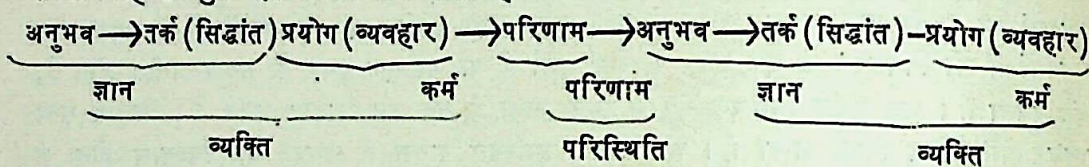 अनुभव→तर्क (सिद्धांत) प्रयोग (व्यवहार)→परिणाम→अनुभव→तर्क (सिद्धांत)–प्रयोग (व्यवहार)
ज्ञान कर्म परिणाम ज्ञान कर्म
व्यक्ति परिस्थिति व्यक्ति